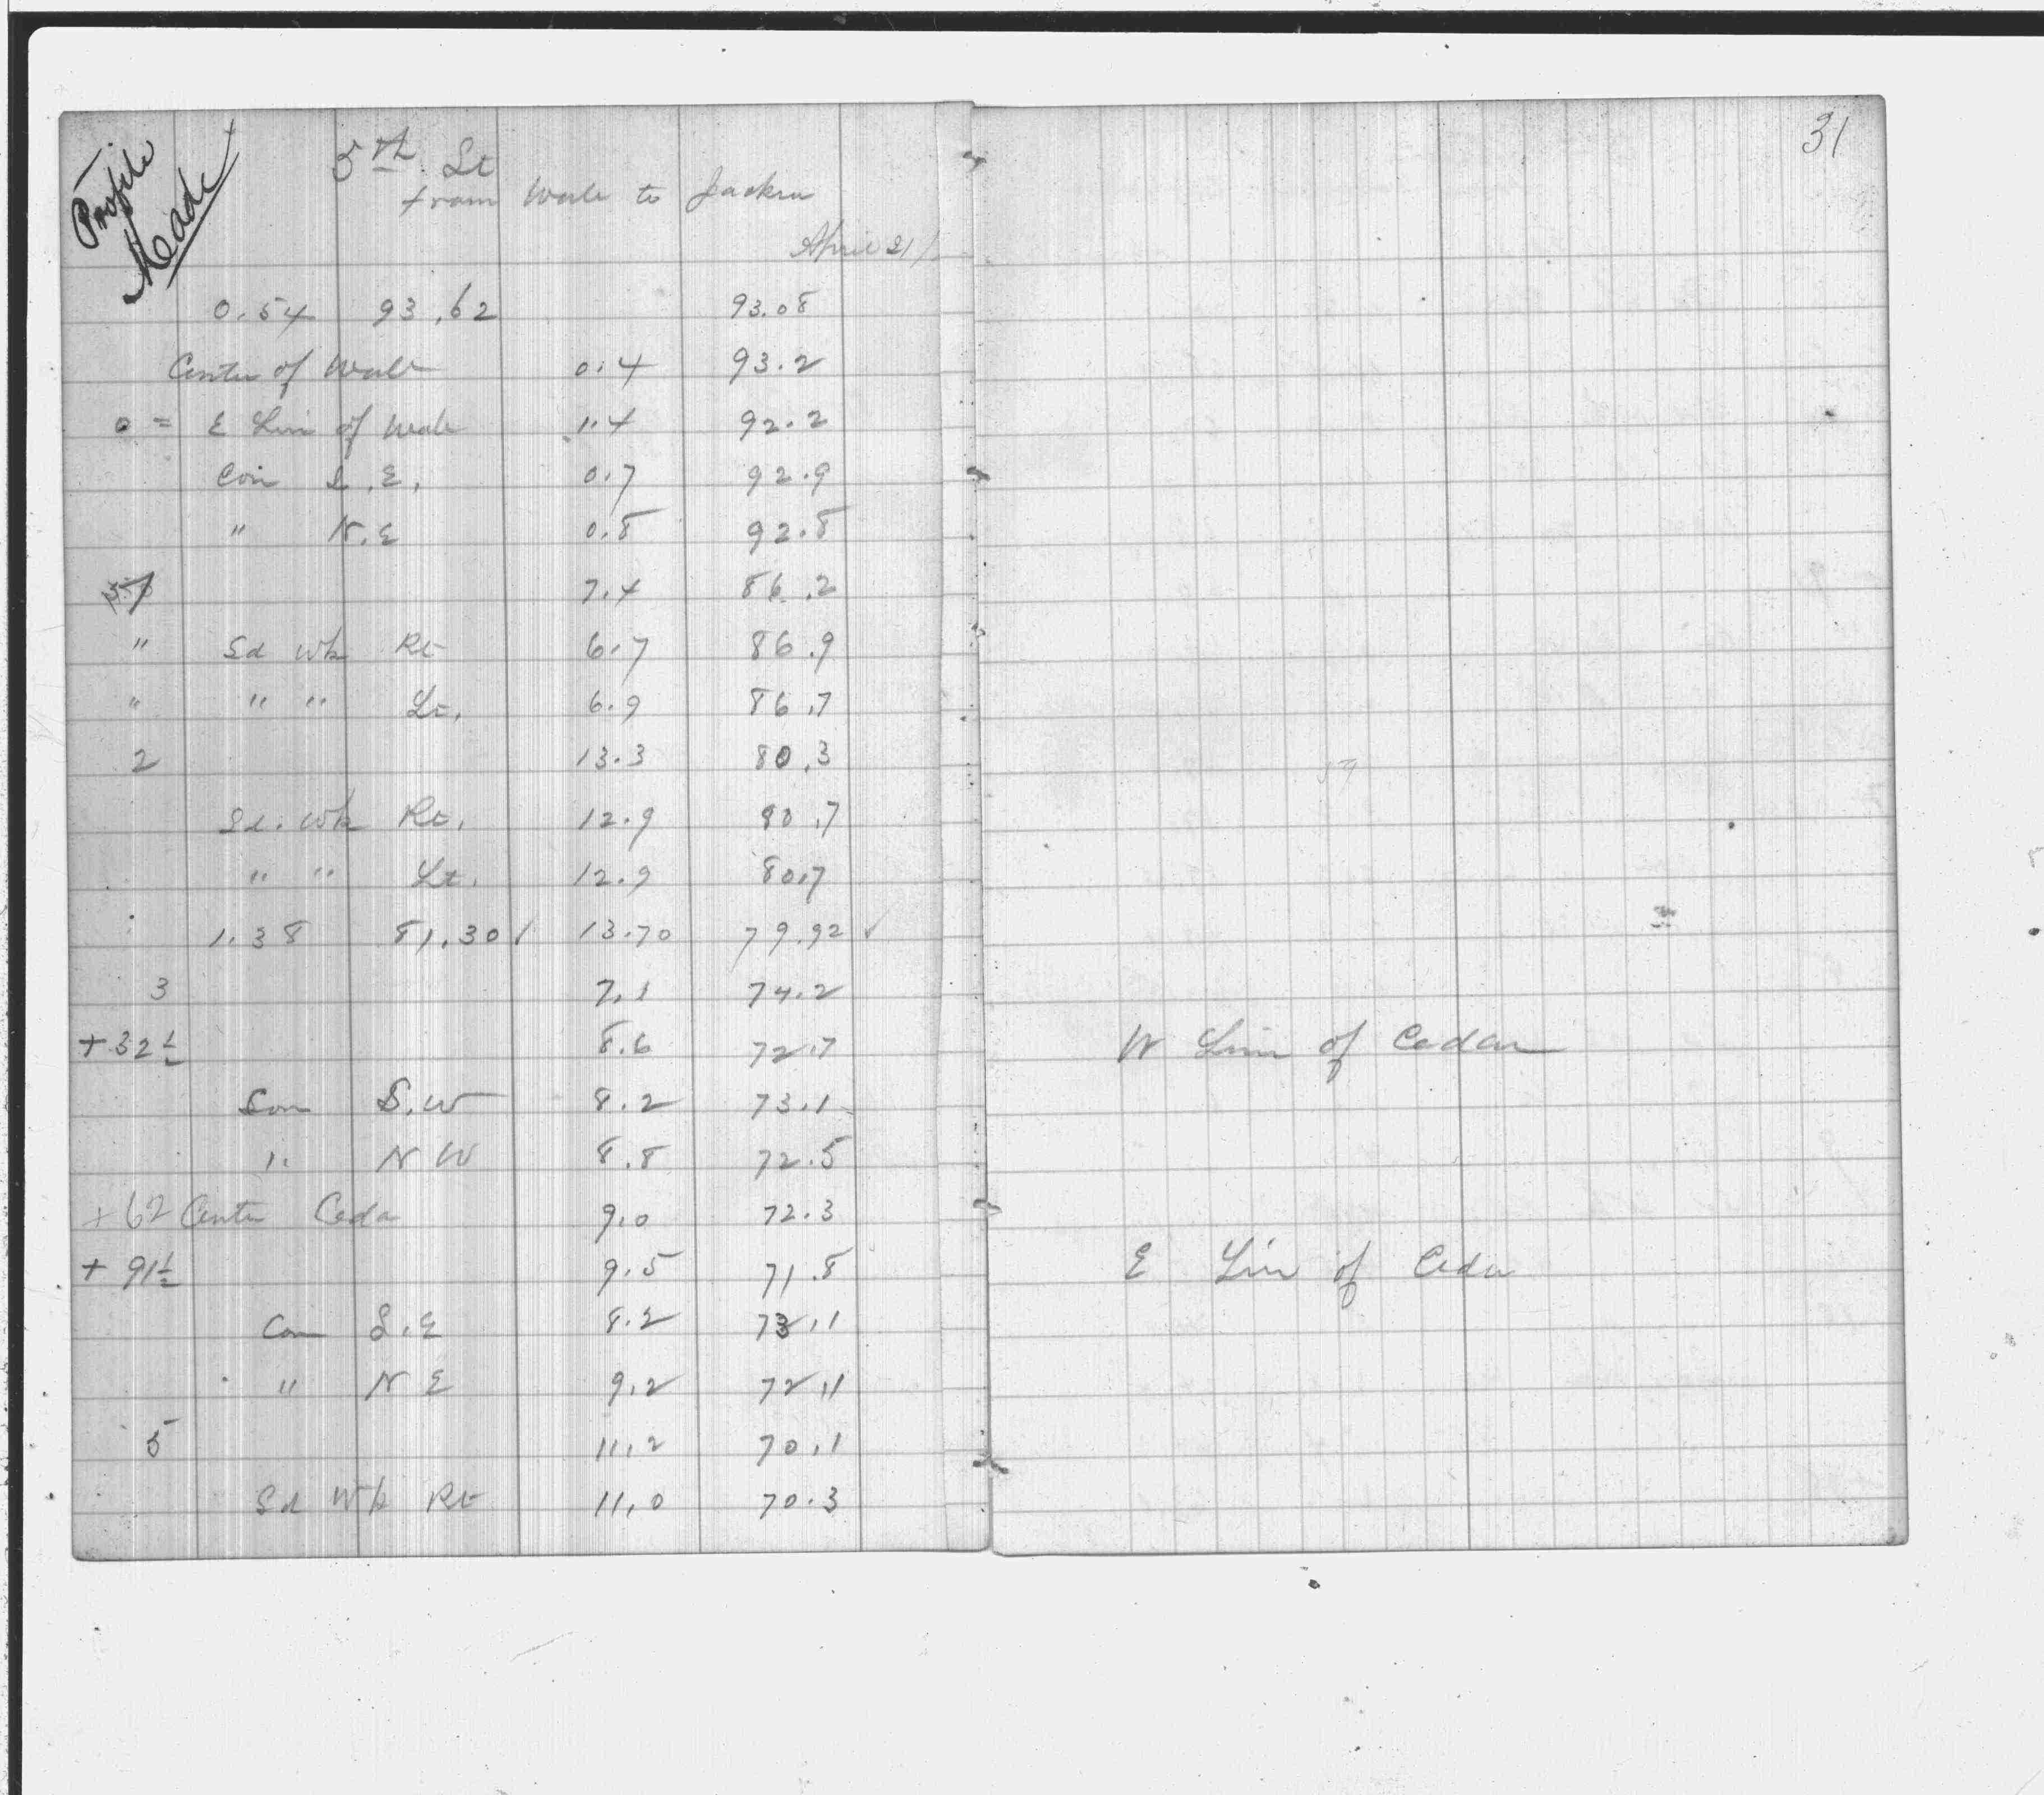 Profile
Made
5th St
from Wall to Jackson
April 21/
0.54 93.62 93.08
Center of Wall 0.4 93.2
0 = E Lin of Wall 1.4 92.2
Cor S.E. 0.7 92.9
" N.E 0.8 92.8
7.4 86.2
" Sd Wk Rt 6.7 86.9
" " " Lt. 6.9 86.7
2 13.3 80.3
Sd. Wk Rt. 12.9 80.7
" " Lt. 12.9 80.7
1.38 81.30 / 13.70 79.92 ✓
3 7.1 74.2
+ 32 1/2 8.6 72.7
Cor S.W 8.2 73.1
" N W 8.8 72.5
+ 62 Center Ceda 9.0 72.3
+ 91 1/2 9.5 71.8
Cor S.E 8.2 73.1
" N E 9.2 72.1
5 11.2 70.1
Sd Wk Rt 11.0 70.3
31
W Lin of Cedar
E Lin of Cedar